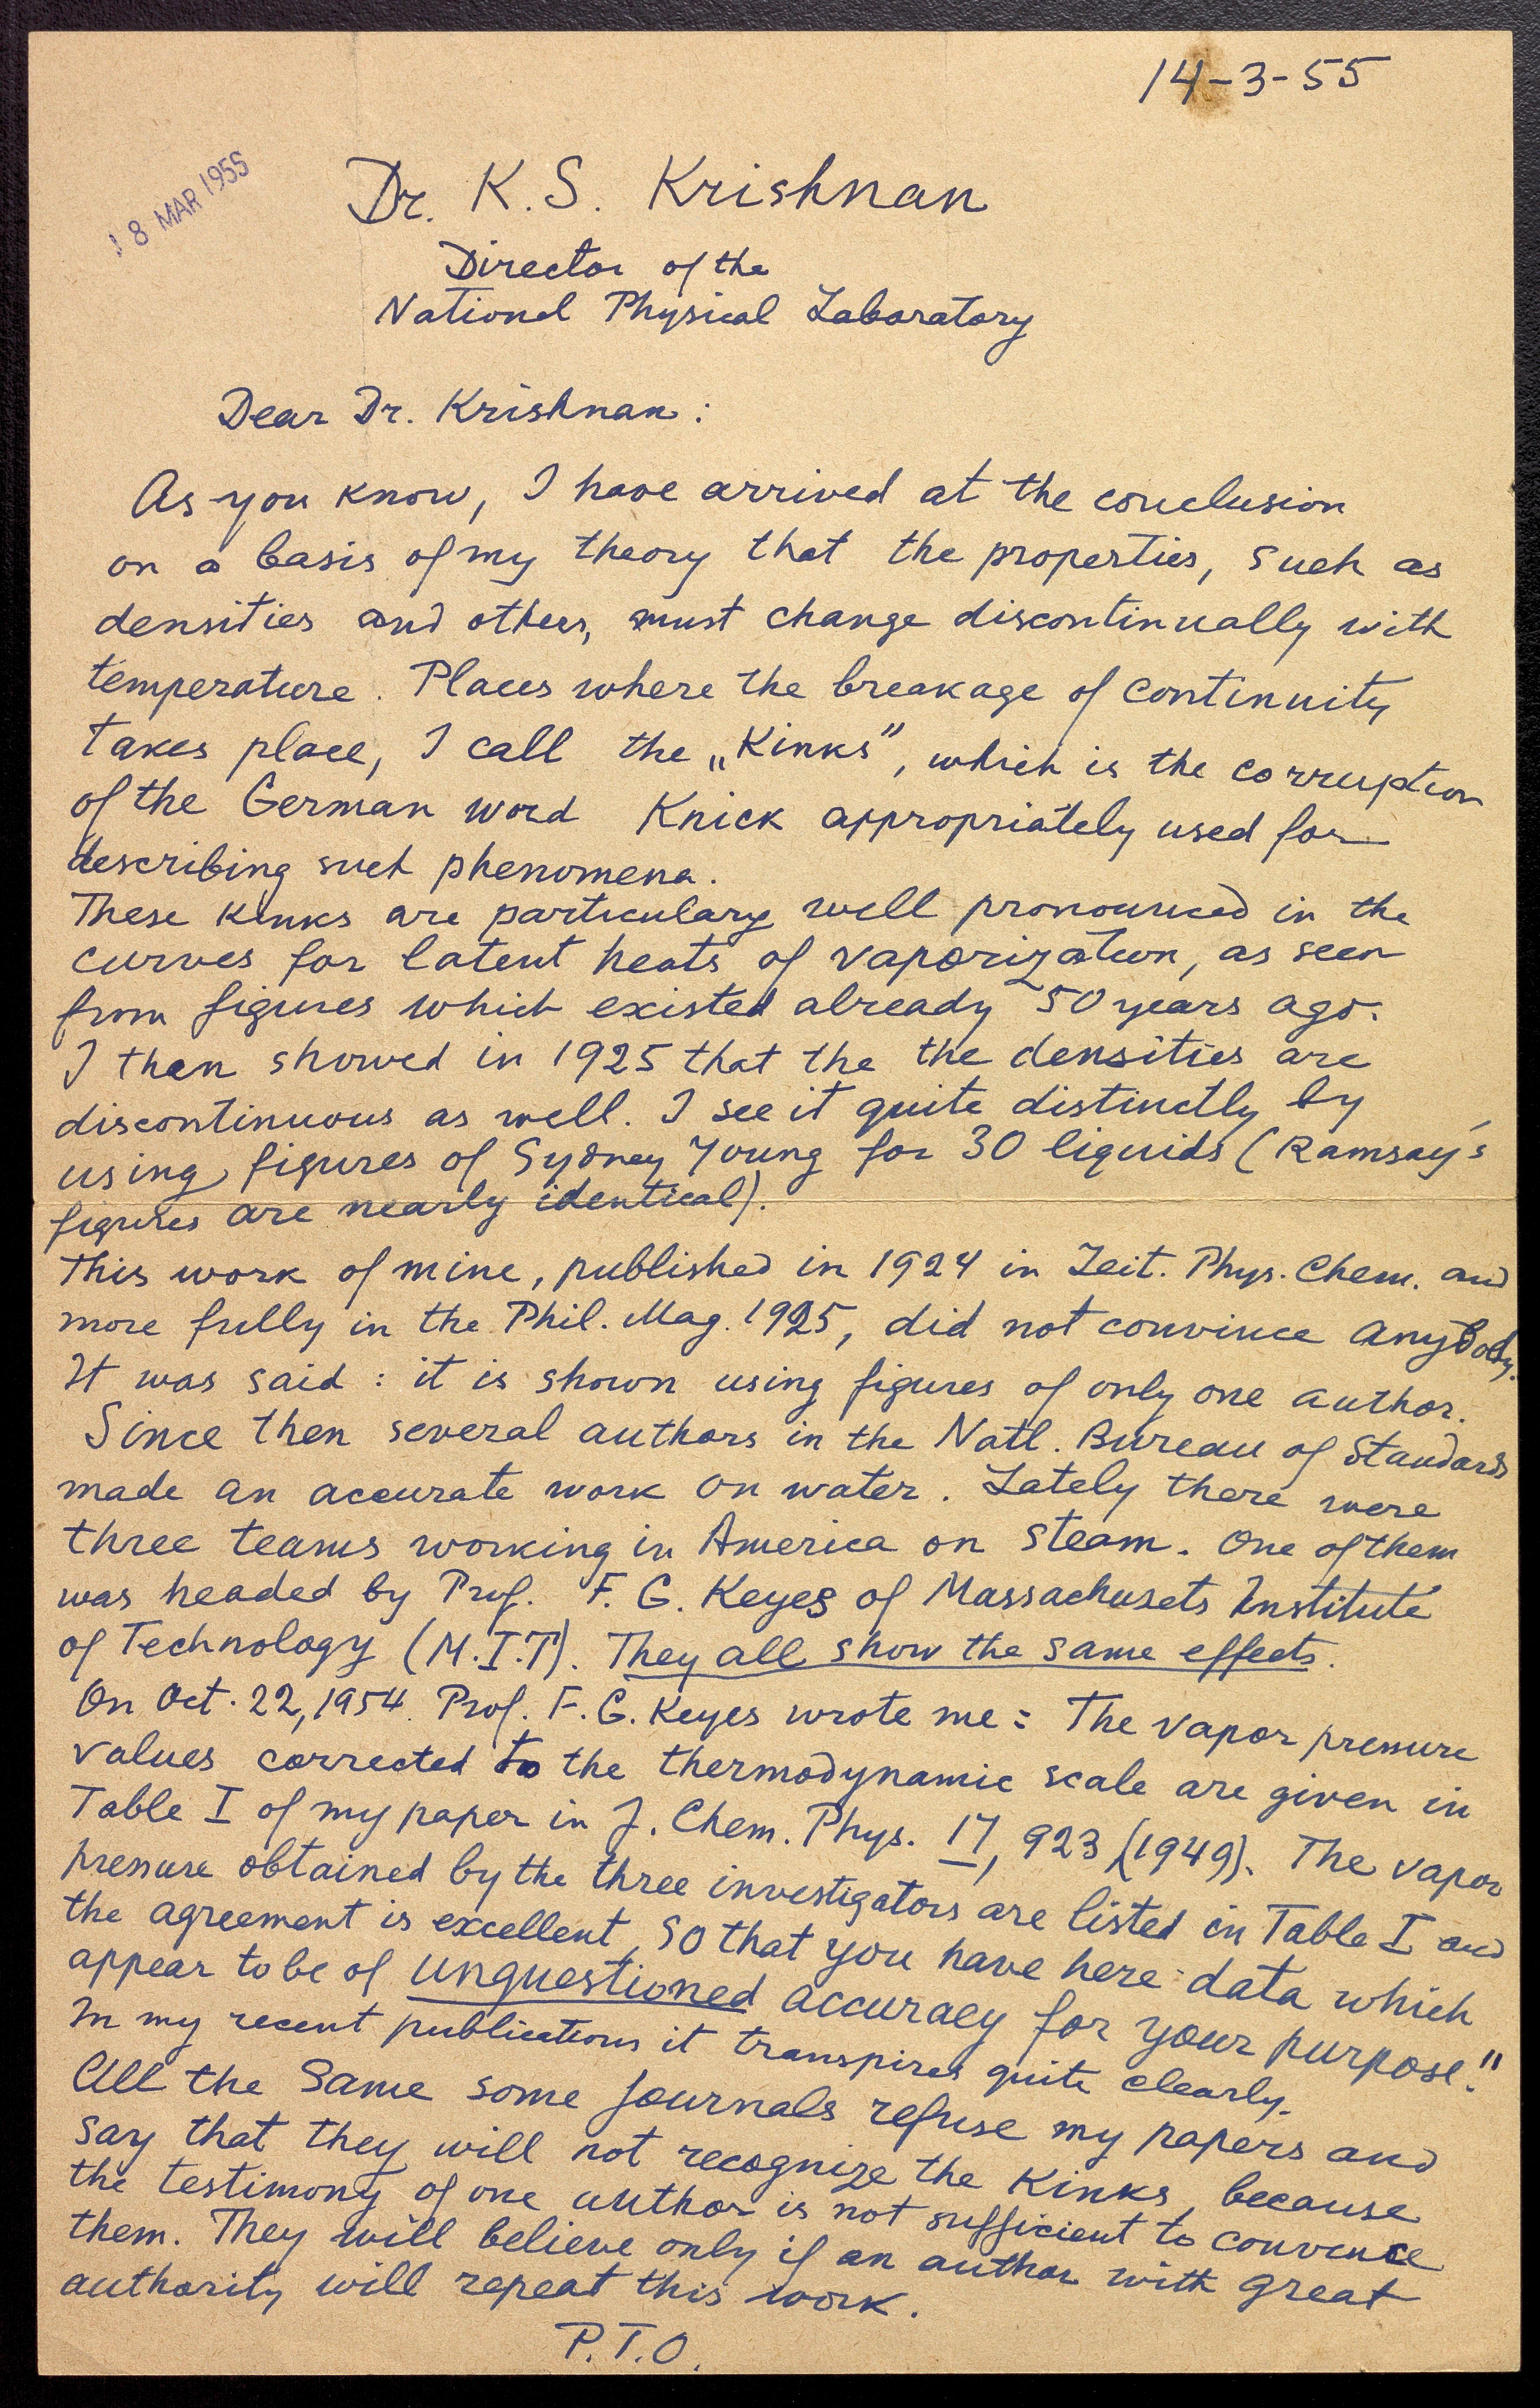 14-3-55
18 MAR 1955
Dr. K. S. Krishnan
Director of the
National Physical Laboratory
Dear Dr. Krishnan:
As you know, I have arrived at the conclusion
on a basis of my theory that the properties, such as
densities and others, must change discontinually with
temperature. Places where the breakage of continuity
takes place, I call the „Kinks”, which is the corruption
of the German word Knick appropriately used for
describing such phenomena.
These kinks are particulary well pronounced in the
curves for latent heats of vaporization, as seen
from figures which existed already 50 years ago.
I then showed in 1925 that the the densities are
discontinuous as well. I see it quite distinctly by
using figures of Sydney Young for 30 liquids (Ramsay's
figures are nearly identical).
This work of mine, published in 1924 in Zeit. Phys. Chem. and
more fully in the Phil. Mag. 1925, did not convince anybody.
It was said: it is shown using figures of only one author.
Since then several authors in the Natl. Bureau of Standards
made an accurate work on water. Lately there were
three teams working in America on steam. One of them
was headed by Prof. F. G. Keyes of Massachusets Institute
of Technology (M.I.T). They all show the same effects.
On Oct. 22, 1954. Prof. F. G. Keyes wrote me: The vapor pressure
values corrected to the thermodynamic scale are given in
Table I of my paper in J. Chem. Phys. 17, 923 (1949). The vapor
pressure obtained by the three investigators are listed in Table I and
the agreement is excellent, so that you have here data which
appear to be of unquestioned accuracy for your purpose."
In my recent publications it transpires quite clearly.
All the same some journals refuse my papers and
say that they will not recognize the Kinks, because
the testimony of one author is not sufficient to convence
them. They will believe only if an author with great
authority will repeat this work.
P.T.O.